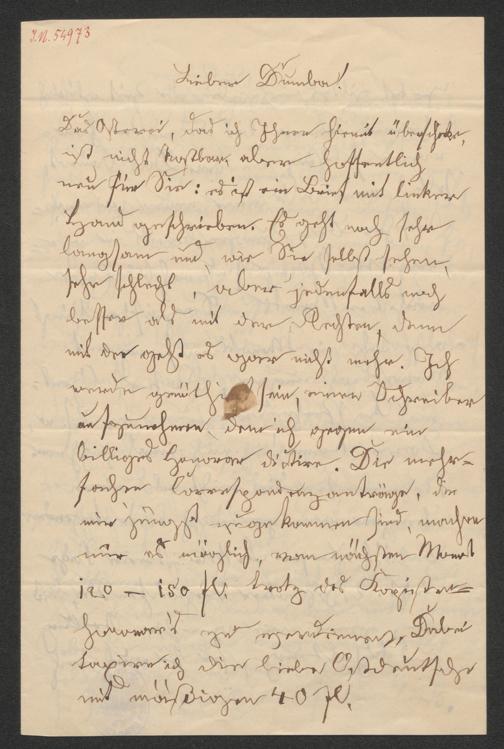 I.N. 54973
Lieber Dumba!
Das Osterei, das ich Ihnen hiemit überschicke,
ist nicht kostbar, aber hoffentlich
neu für Sie: es ist ein Brief mit linker
Hand geschrieben. Es geht noch sehr
langsam und, wie Sie selbst sehen,
sehr schlecht, aber jedenfalls noch
besser als mit der Rechten, denn
mit der geht es gar nicht mehr. Ich
werde genöthigt sein, einen Schreiber
aufzunehmen, dem ich gegen ein
billiges Honorar dictire. Die mehr=
fachen Correspondenzanträge, die
mir jüngst zugekommen sind, machen
mir es möglich, vom nächsten Monat
120 — 150 fl. trotz des Kopisten=
honorar's zu verdienen. Dabei
taxire ich die liebe Ostdeutsche
mit mäßigen 40 fl.